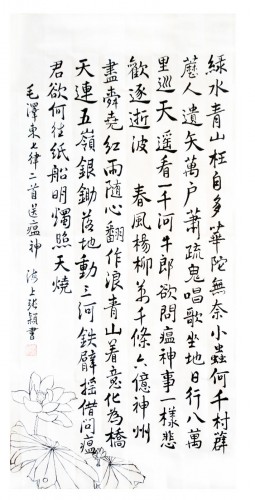 綠水青山枉自多華陀無奈小蟲何千村薜
人遺矢萬戶蕭疏鬼唱歌坐地日行八萬
里巡天遥看一千河牛郎欲問瘟神事一樣悲
歡逐逝波 春風楊柳萬千條六億神州
盡舜堯紅雨隨心翻作浪青山着意化為橋
天連五嶺銀鋤落地動三河鉄臂摇借問瘟
君欲何往紙船明燭照天燒
毛澤東七律二首送瘟神 上張書